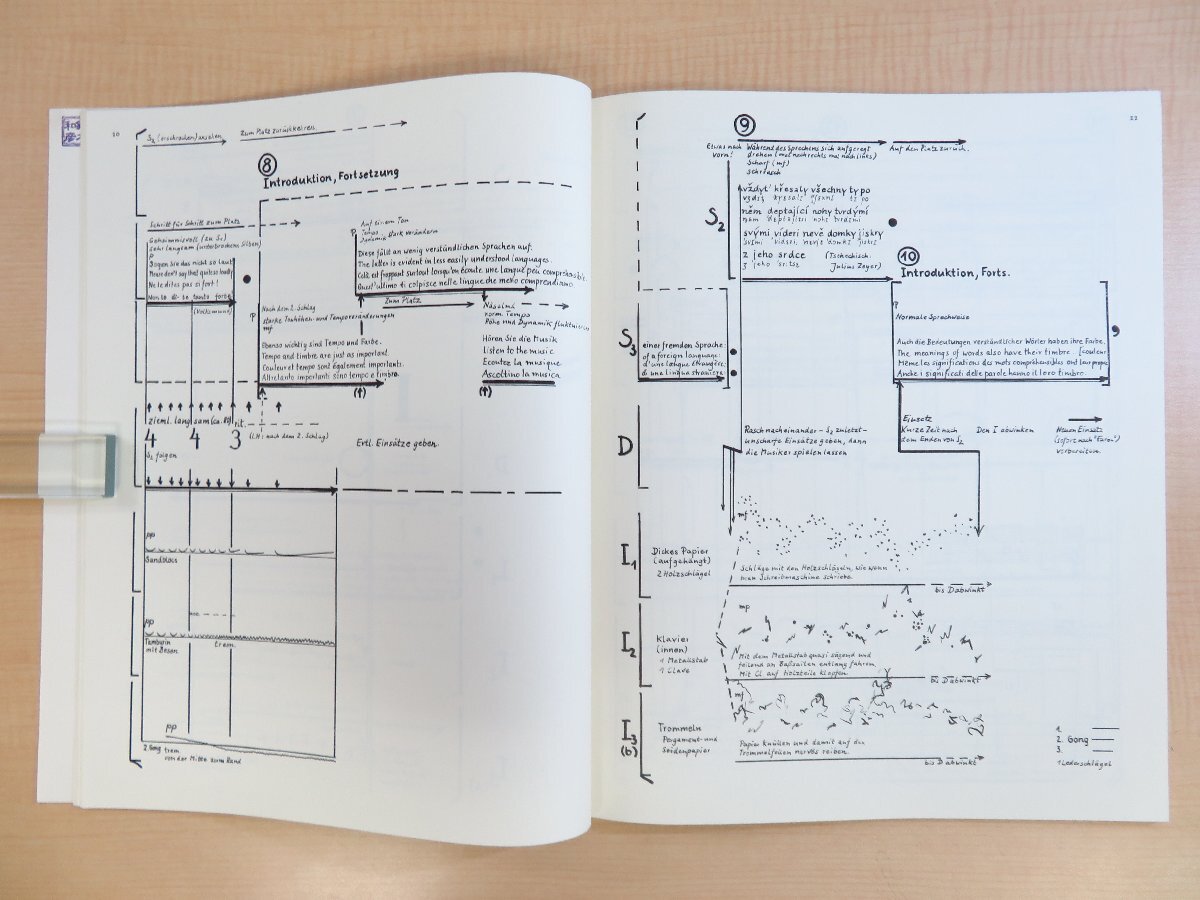 20
S2 (erschrocken) ansehen
Zum Platz zurückkehren
8
Introduktion, Fortsetzung
Schritt für Schritt zum Platz
Geheimnisvoll (zu S1)
sehr langsam (unterbrochene Silben)
p
Sagen Sie das nicht so laut
Never don't say that quite so loudly
Ne le dites pas si fort!
Non lo di-te tanto forte
(Volksmund)
p
Auf einem Ton
Dynamik stark verändern
Diese fällt an wenig verständlichen Sprachen auf.
The latter is evident in less easily understood languages.
Cela est frappant surtout lorsqu'on écoute une langue peu compréhensible.
Quest'ultimo ti colpisce nelle lingue che meno comprendiamo
Zum Platz
p
Nach dem 2. Schlag
starke Tonhöhen- und Tempoveränderungen
mf
Ebenso wichtig sind Tempo und Farbe.
Tempo and timbre are just as important.
Couleur et tempo sont également importants.
Altretanto importanti sono tempo e timbro.
(↑)
Näselnd
norm. Tempo
Höhe und Dynamik fluktuieren
Hören Sie die Musik
Listen to the music
Ecoutez la musique
Ascoltino la musica
(↑)
zieml. langsam (ca. 80) rit.
4 4 3
(LH: nach dem 2. Schlag)
S2 folgen
Evtl. Einsätze geben.
pp
Sandblocs
pp
Tamburin
mit Besen
trem.
pp
2. Gong trem
von der Mitte zum Rand
22
9
Etwas nach
vorn!
Während des Sprechens sich aufgeregt
drehen (mal nach rechts mal nach links)
Scharf (mf)
schnell rasch
Auf den Platz zurück.
S2
vždyť křesaly všechny ty po
něm deptající nohy tvrdými
svými víderi nevě domky jiskry
z jeho srdce
(Tschechisch.
Julius Zeyer)
10
Introduktion, Forts.
S3
einer fremden Sprache:
of a foreign language:
d'une langue étrangère:
di una lingua straniera:
p
Normale Sprechweise
Auch die Bedeutungen verständlicher Wörter haben ihre Farbe.
The meanings of words also have their timbre. [couleur
Même les significations des mots compréhensibles ont leur propre
Anche i significati delle parole hanno il loro timbro.
,
D
Rasch nacheinander – S2 zuletzt –
unscharfe Einsätze geben, dann
die Musiker spielen lassen
Einsatz
Kurze Zeit nach
dem Enden von S2
Den I abwinken
Neuen Einsatz
(sofort nach "Farbe")
vorbereiten.
I1
Dickes Papier
(aufgehängt)
2 Holzschlägel
mf
Schläge mit den Holzschlägeln, wie wenn
man Schreibmaschine schriebe.
bis D abwinkt
I2
Klavier
(innen)
1 Metallstab
1 Clave
mp
Mit dem Metallstab quasi sägend und
feilend an Baßsaiten entlang fahren.
Mit Cl. auf Holzteile klopfen.
bis D abwinkt
I3
(b)
Trommeln
Pergament- und
Seidenpapier
mf
Papier knüllen und damit auf den
Trommelfellen nervös reiben.
bis D abwinkt
1.
2. Gong
3.
1 Lederschlägel